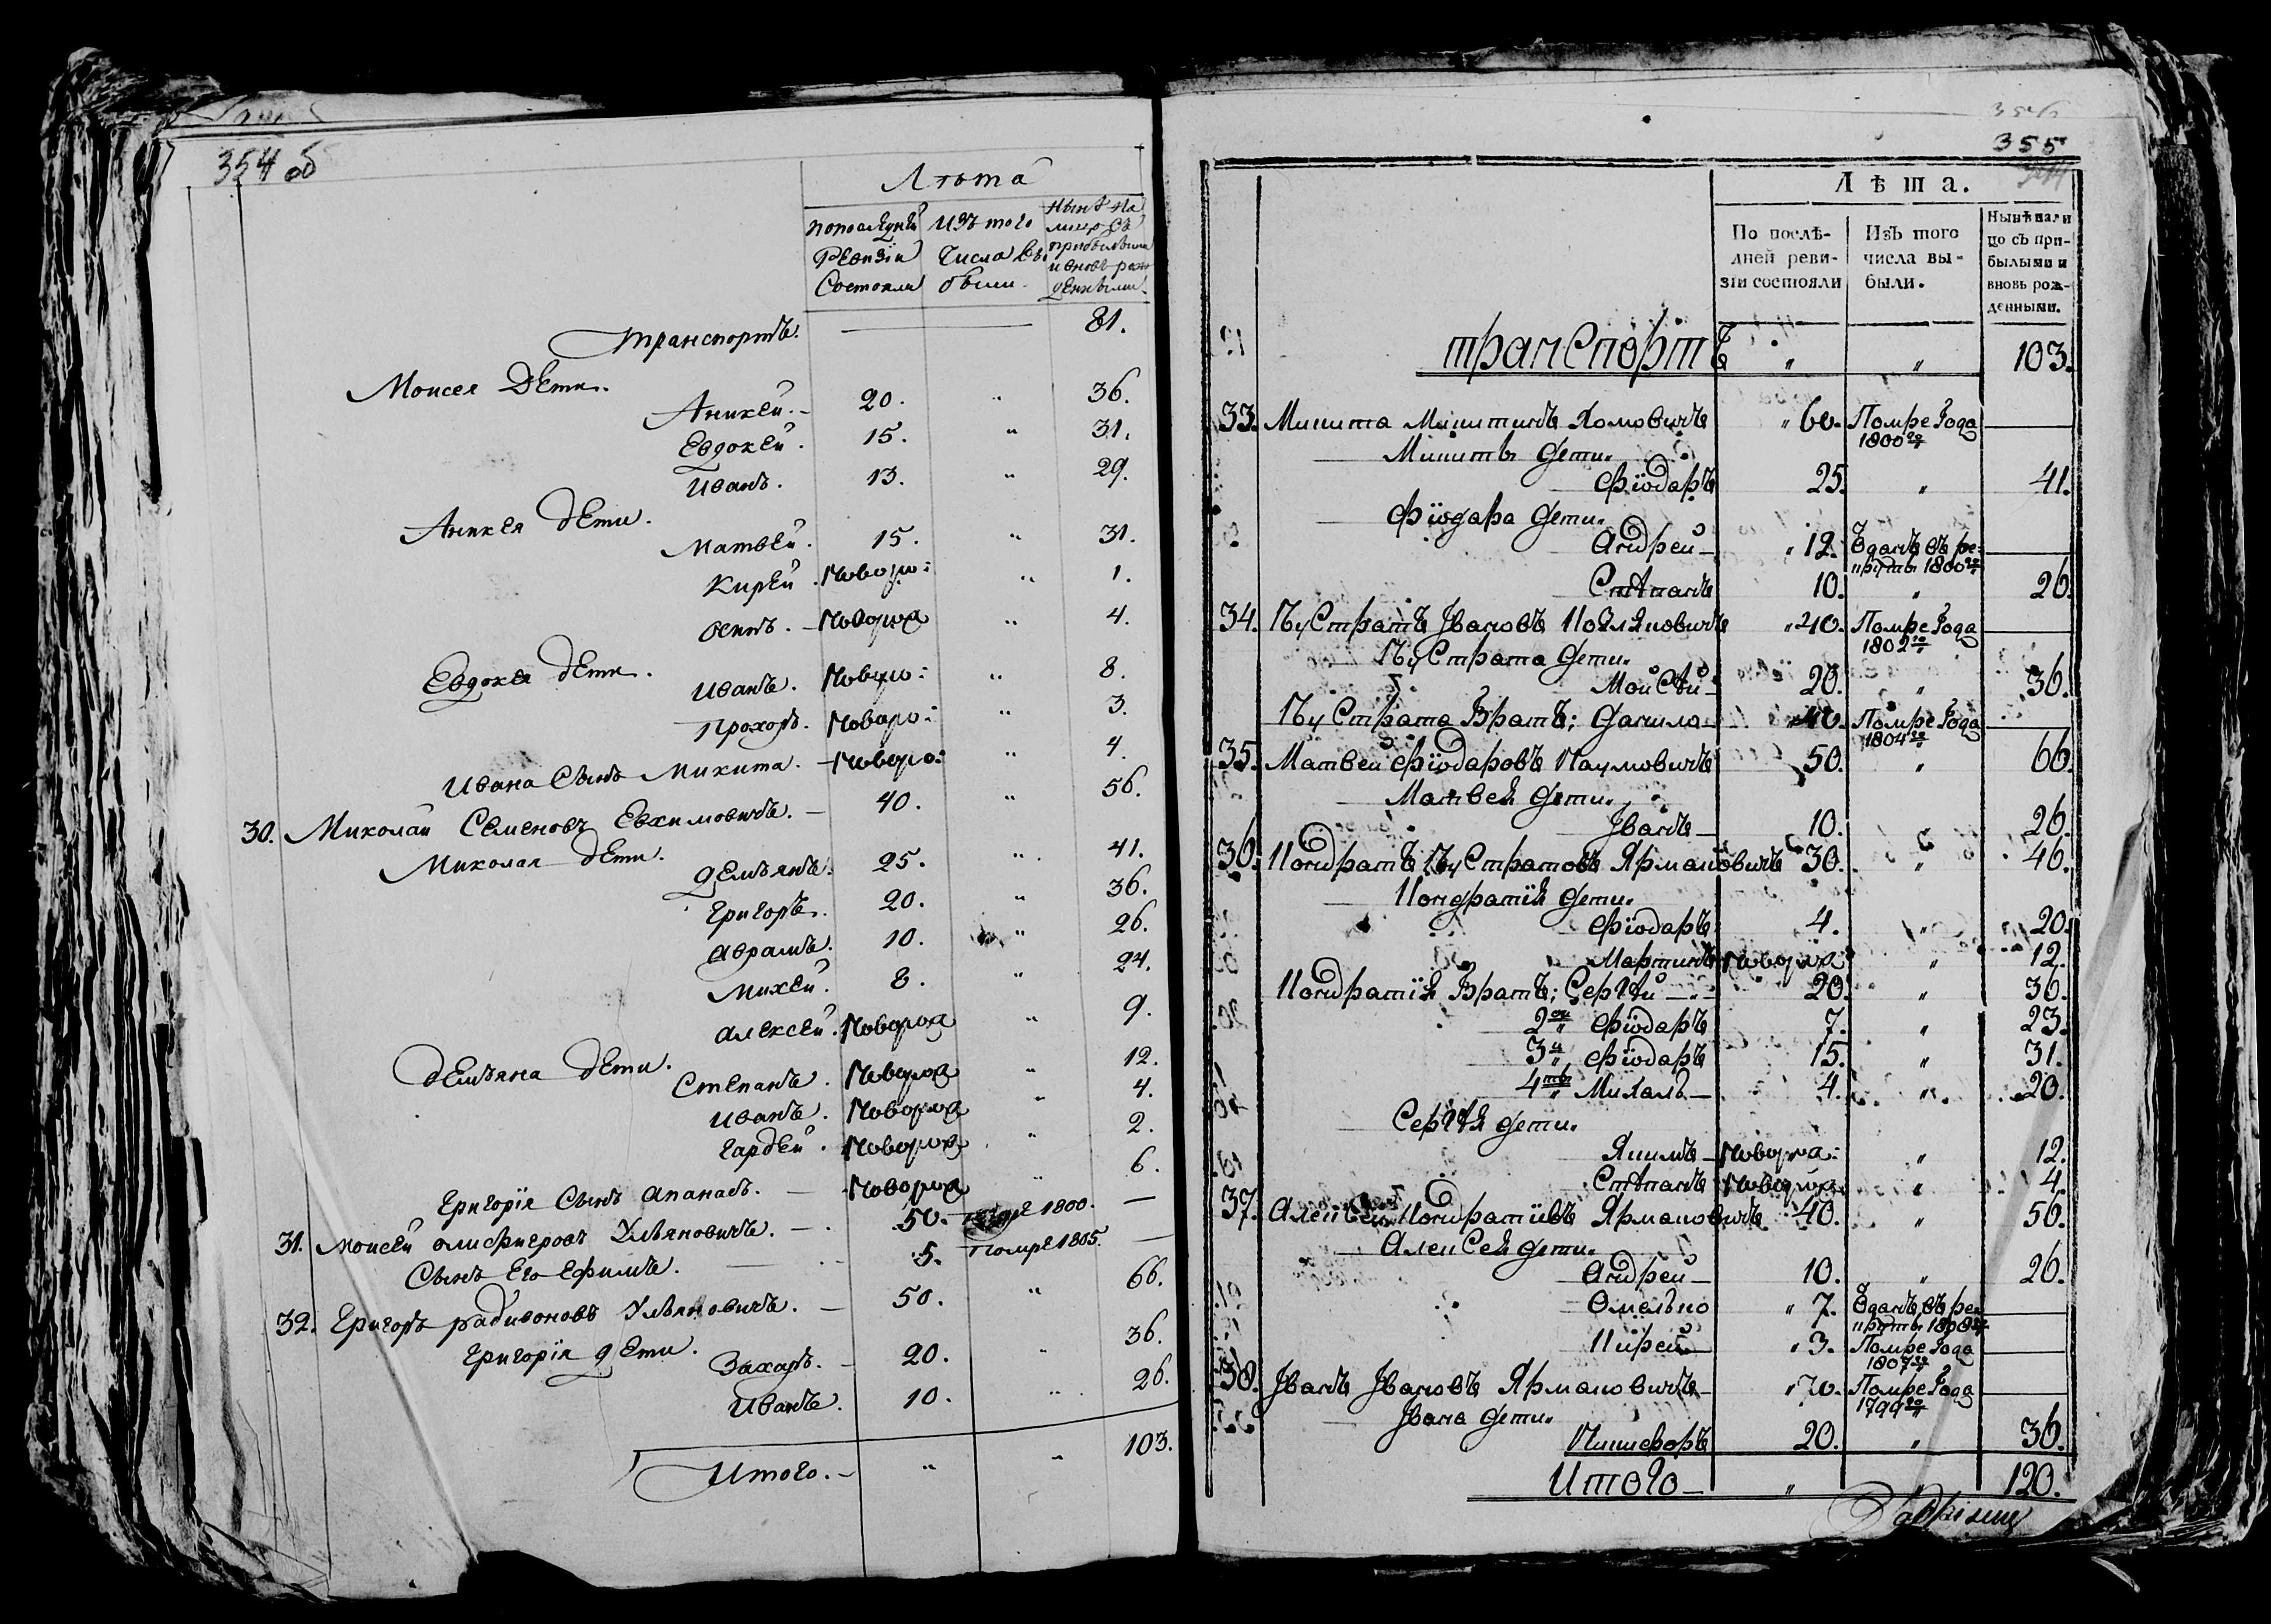 354 об
Лѣта
попоследней Ревизiи Состояли
Изъ того Числа вы были.
Нынѣ на лицо съ прибылыми и вновь рожденными.
транспортъ. — 81.
Моисея Дети.
Аникей. 20. „ 36.
Евдокей. 15. „ 31.
Иванъ. 13. „ 29.
Аникея Дети.
Матвей. 15. „ 31.
Кирей. Новоро: „ 1.
Осипъ. Новорож „ 4.
Евдокея Дети.
Иванъ. Новоро: „ 8.
Прохоръ. Новоро: „ 3.
Ивана Сынъ Микита. Новоро: „ 4.
30. Миколай Семеновъ Евхимовичъ. 40. „ 56.
Миколая Дети.
Демьянъ. 25. „ 41.
Григоръ. 20. „ 36.
Аврамъ. 10. „ 26.
Михей. 8. „ 24.
Алексей. Новорож „ 9.
Демьяна Дети.
Степанъ. Новорож „ 12.
Иванъ. Новорож „ 4.
Гардей. Новорож „ 2.
Григорiя Сынъ Апанасъ. Новорож „ 6.
31. Моисей Олисфиеровъ Ульяновичъ. 50. Помре 1800. —
Сынъ Его Ефимъ. 5. Помре 1805. —
32. Григоръ Радивоновъ Ульяновичъ. 50. „ 66.
Григорiя Дети.
Захаръ. 20. „ 36.
Иванъ. 10. „ 26.
Итого. „ „ 103.
356
355
Лѣта.
По послѣдней ревизiи состояли
Изъ того числа выбыли.
Нынѣ налицо съ прибылыми и вновь рожденными.
транСпортъ „ „ 103.
33. Микита Микитинъ Хомовичъ „ 60. Помре Года 1800го —
Микиты дети.
Фiодаръ 25. „ 41.
Фiодара дети.
Андрей „ 12. Вданъ въ рекруты 1800го —
Стѣпанъ 10. „ 26.
34. КуСтратъ Iвановъ Ковляновичъ „ 40. Помре Года 1802го —
КуСтрата дети.
МойСѣй 20. „ 36.
КуСтрата Братъ; Данила „ 40. Помре Года 1804го —
35. Матвей Фiодаровъ Наумовичъ 50. „ 66.
Матвея дети.
Iванъ 10. „ 26.
36. Кондратъ КуСтратовъ Ярмановичъ 30. „ 46.
Кондратiя дети.
Фiодаръ 4. „ 20.
Мартинъ Новорож „ 12.
Кондратiя Братъ; Сергѣй 20. „ 36.
2ой Фiодаръ 7. „ 23.
3й Фiодаръ 15. „ 31.
4ты Михалъ 4. „ 20.
Сергѣя дети.
Якимъ Новорож: „ 12.
Стѣпанъ Новорож: „ 4.
37. Алексей Кондратiевъ Ярмановичъ 40. „ 56.
АлекСея дети.
Андрей 10. „ 26.
Омелько „ 7. Вданъ въ рекруты 1808го —
Кирей „ 3. Помре Года 1807го —
38. Iванъ Iвановъ Ярмановичъ „ 70. Помре Года 1799го —
Iвана дети.
Никифоръ 20. „ 36.
Итого „ „ 120.